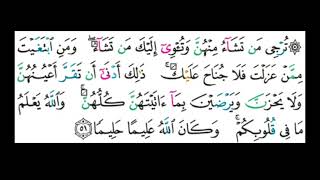 ۞ تُرْجِى مَن تَشَآءُ مِنْهُنَّ وَتُـْٔوِىٓ إِلَيْكَ مَن تَشَآءُ ۖ وَمَنِ ٱبْتَغَيْتَ
مِمَّنْ عَزَلْتَ فَلَا جُنَاحَ عَلَيْكَ ۚ ذَٰلِكَ أَدْنَىٰٓ أَن تَقَرَّ أَعْيُنُهُنَّ
وَلَا يَحْزَنَّ وَيَرْضَيْنَ بِمَآ ءَاتَيْتَهُنَّ كُلُّهُنَّ ۚ وَٱللَّهُ يَعْلَمُ
مَا فِى قُلُوبِكُمْ ۚ وَكَانَ ٱللَّهُ عَلِيمًا حَلِيمًا ۝٥١